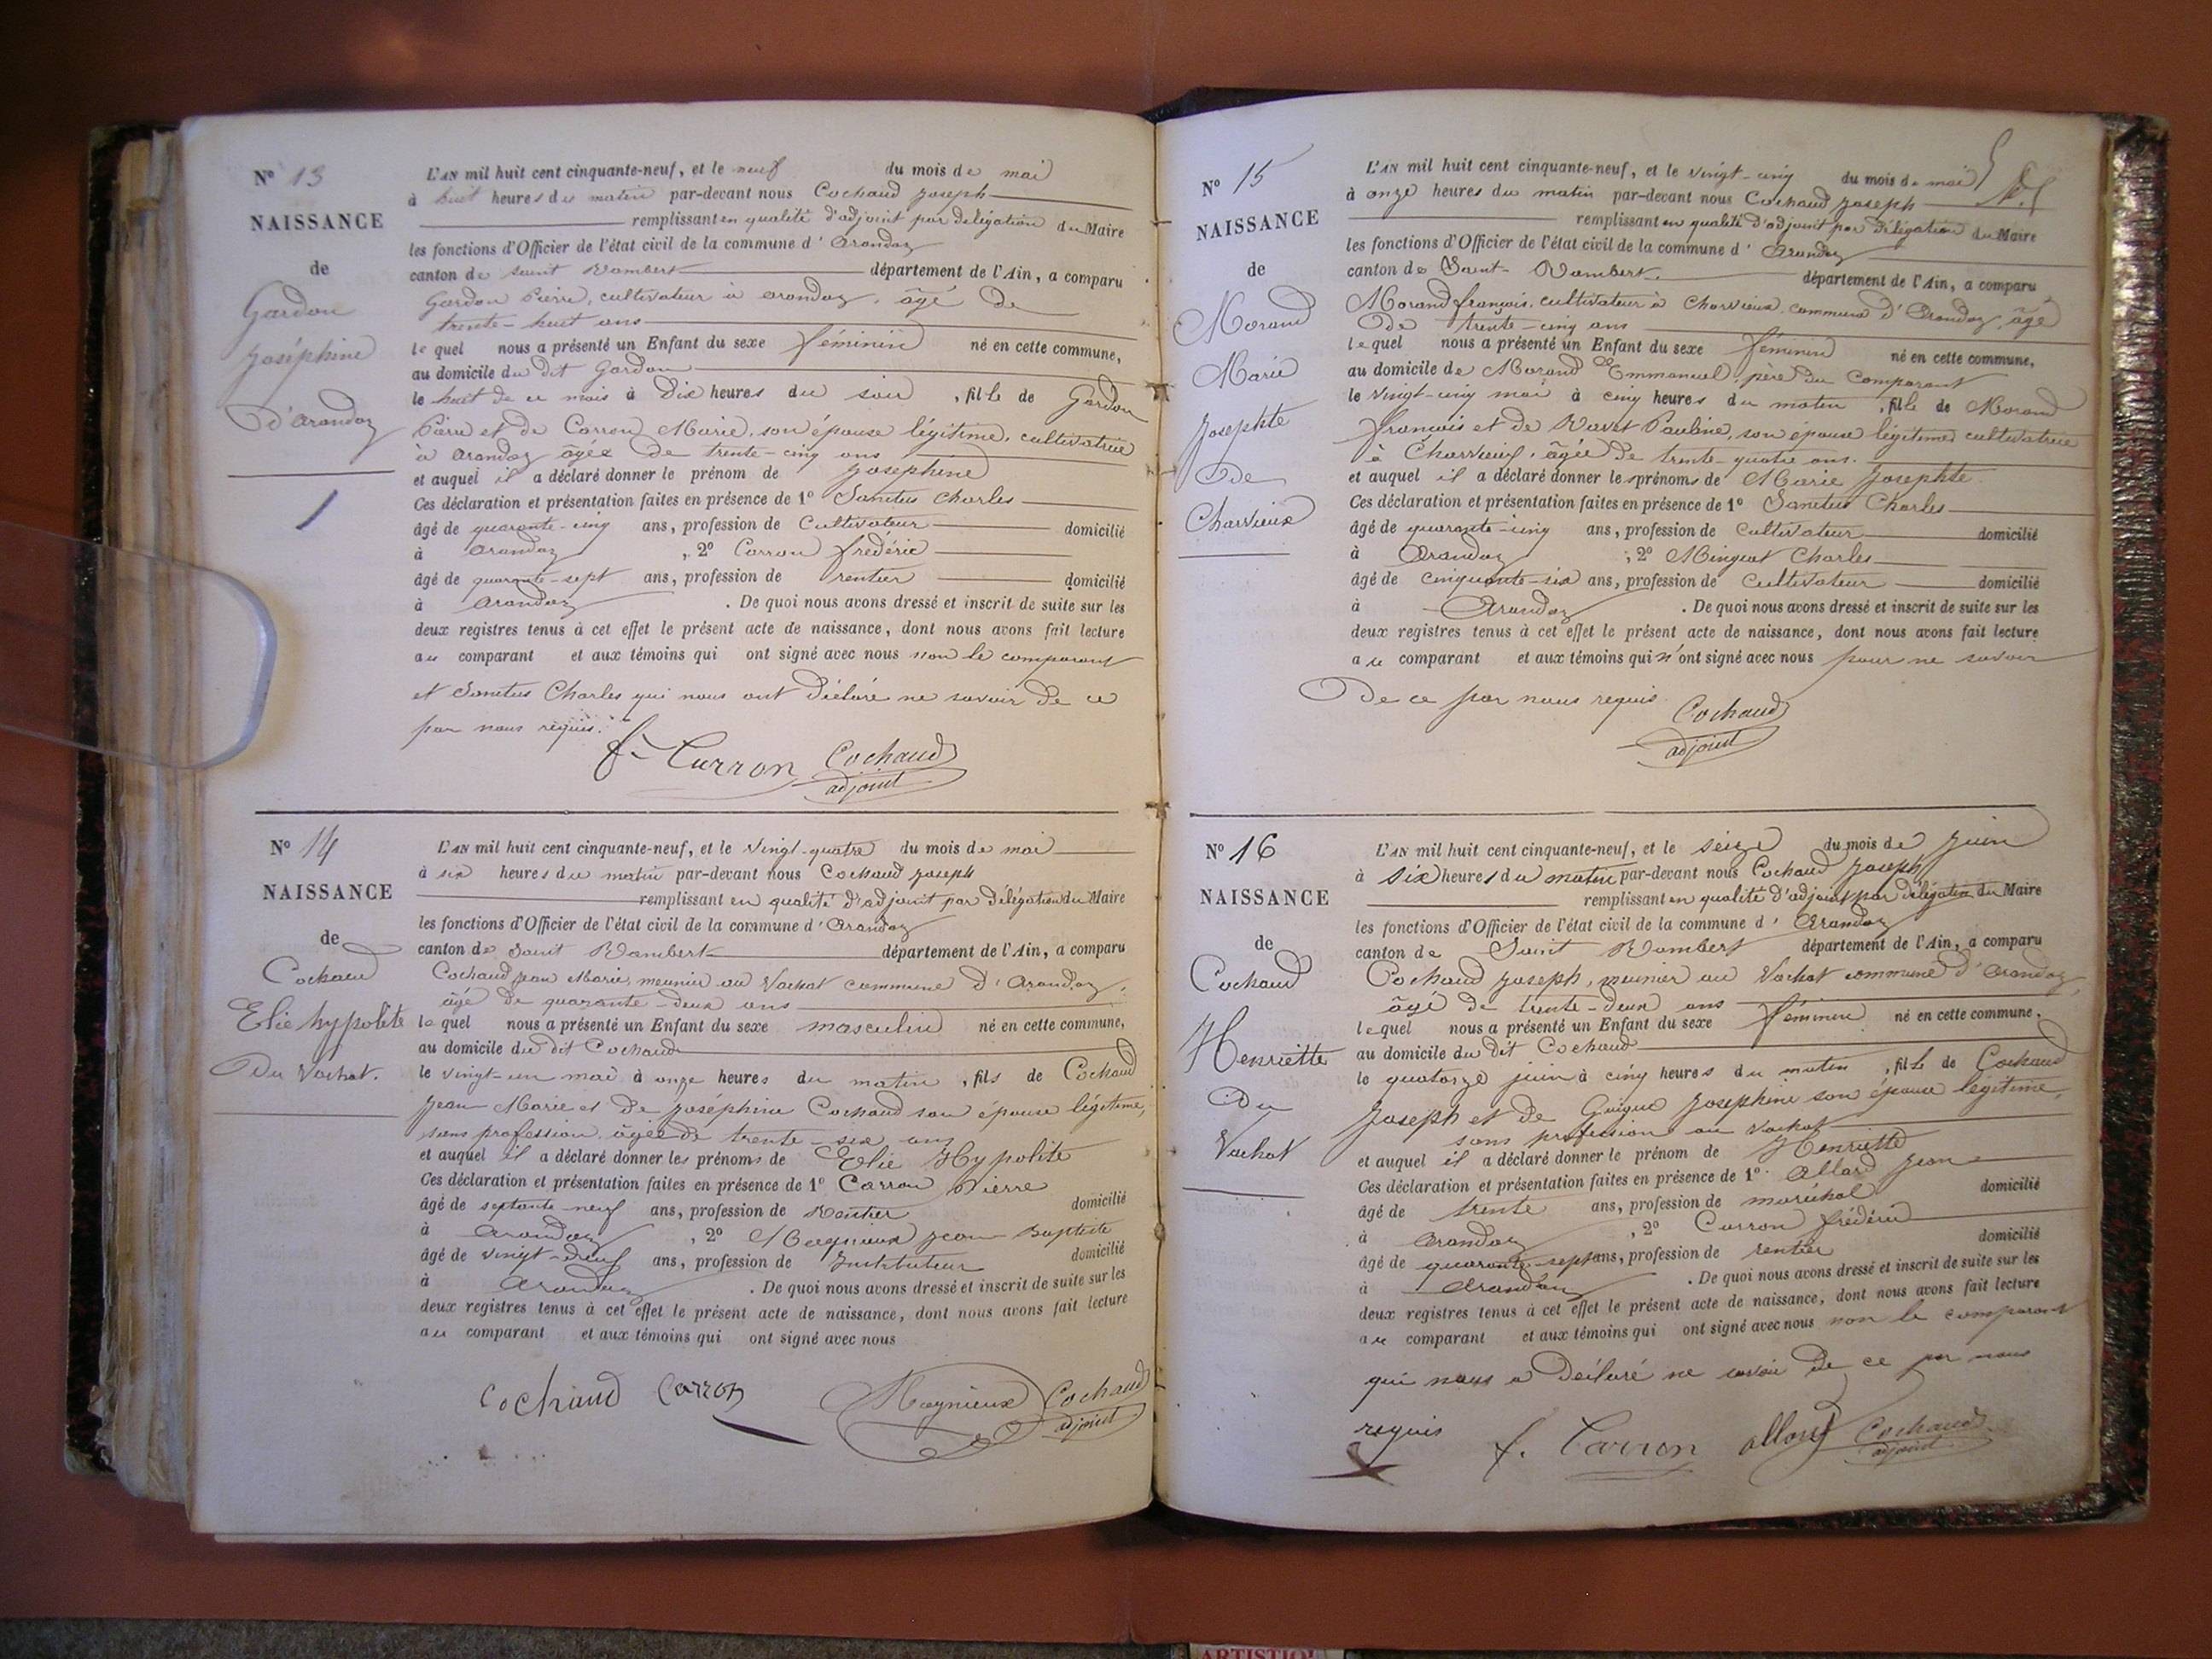 N° 13
NAISSANCE
de
Gardon
Joséphine
D'arandaz
L'AN mil huit cent cinquante-neuf, et le neuf du mois de mai
à huit heures du matin par-devant nous Cochaud Joseph
remplissant en qualité d'adjoint par délégation du Maire
les fonctions d'Officier de l'état civil de la commune d'Arandaz
canton de saint Rambert département de l'Ain, a comparu
Gardon Pierre, cultivateur à arandaz, âgé de
trente-huit ans
lequel nous a présenté un Enfant du sexe féminin né en cette commune,
au domicile du dit Gardon
le huit de ce mois à Dix heures du soir, fille de Gardon
Pierre et de Carron Marie, son épouse légitime, cultivatrice
à arandaz âgée de trente-cinq ans
et auquel il a déclaré donner le prénom de Joséphine
Ces déclaration et présentation faites en présence de 1° Sanctus Charles
âgé de quarante-cinq ans, profession de Cultivateur domicilié
à arandaz, 2° Carron frédéric
âgé de quarante-sept ans, profession de rentier domicilié
à arandaz. De quoi nous avons dressé et inscrit de suite sur les
deux registres tenus à cet effet le présent acte de naissance, dont nous avons fait lecture
au comparant et aux témoins qui ont signé avec nous non le comparant
et Sanctus Charles qui nous ont déclaré ne savoir de ce
par nous requis.
f. Carron Cochaud
adjoint
N° 14
NAISSANCE
de
Cochaud
Elie hypolite
Du Vachat.
L'AN mil huit cent cinquante-neuf, et le vingt-quatre du mois de mai
à six heures du matin par-devant nous Cochaud Joseph
remplissant en qualité d'adjoint par Délégation du Maire
les fonctions d'Officier de l'état civil de la commune d'Arandaz
canton de Saint Rambert département de l'Ain, a comparu
Cochaud Jean Marie, meunier au Vachat commune d'Arandaz,
âgé de quarante-deux ans
lequel nous a présenté un Enfant du sexe masculin né en cette commune,
au domicile du dit Cochaud
le vingt-un mai à onze heures du matin, fils de Cochaud
Jean-Marie et De Joséphine Cochaud son épouse légitime,
sans profession, âgée de trente-six ans
et auquel il a déclaré donner les prénoms de Elie Hypolite
Ces déclaration et présentation faites en présence de 1° Carron Pierre
âgé de septante-neuf ans, profession de Rentier domicilié
à Arandaz, 2° Magnieux Jean Baptiste
âgé de vingt-neuf ans, profession de Instituteur domicilié
à Arandaz. De quoi nous avons dressé et inscrit de suite sur les
deux registres tenus à cet effet le présent acte de naissance, dont nous avons fait lecture
au comparant et aux témoins qui ont signé avec nous
Cochaud Carron Magnieux Cochaud
adjoint
N° 15
NAISSANCE
de
Morand
Marie
Josephte
De
Charvieux
L'AN mil huit cent cinquante-neuf, et le vingt-cinq du mois de mai
à onze heures du matin par-devant nous Cochaud Joseph
remplissant en qualité d'adjoint par Délégation du Maire
les fonctions d'Officier de l'état civil de la commune d'Arandaz
canton de Saint-Rambert département de l'Ain, a comparu
Morand françois, cultivateur à Charvieux commune d'Arandaz, âgé
De trente-cinq ans
lequel nous a présenté un Enfant du sexe féminin né en cette commune,
au domicile de Morand Emmanuel, père du Comparant
le vingt-cinq mai à cinq heures du matin, fille de Morand
françois et de Ravet Pauline, son épouse légitime, cultivatrice
à Charvieux, âgée De trente-quatre ans.
et auquel il a déclaré donner les prénoms de Marie Josephte
Ces déclaration et présentation faites en présence de 1° Sanctus Charles
âgé de quarante-cinq ans, profession de Cultivateur domicilié
à Arandaz; 2° Mingeat Charles
âgé de cinquante-six ans, profession de Cultivateur domicilié
à Arandaz. De quoi nous avons dressé et inscrit de suite sur les
deux registres tenus à cet effet le présent acte de naissance, dont nous avons fait lecture
au comparant et aux témoins qui n'ont signé avec nous pour ne savoir
De ce par nous requis.
Cochaud
adjoint
N° 16
NAISSANCE
de
Cochaud
Henriette
Du
Vachat
L'AN mil huit cent cinquante-neuf, et le seize du mois de Juin
à six heures du matin par-devant nous Cochaud Joseph
remplissant en qualité d'adjoint par délégation du Maire
les fonctions d'Officier de l'état civil de la commune d'Arandaz
canton de Saint Rambert département de l'Ain, a comparu
Cochaud Joseph, meunier au Vachat commune d'Arandaz,
âgé de trente-deux ans
lequel nous a présenté un Enfant du sexe féminin né en cette commune,
au domicile du dit Cochaud
le quatorze juin à cinq heures du matin, fille de Cochaud
Joseph et de Guigue Joséphine son épouse légitime,
sans profession au Vachat
et auquel il a déclaré donner le prénom de Henriette
Ces déclaration et présentation faites en présence de 1° Allard Jean
âgé de trente ans, profession de maréchal domicilié
à Arandaz, 2° Carron frédéric
âgé de quarante-sept ans, profession de rentier domicilié
à Arandaz. De quoi nous avons dressé et inscrit de suite sur les
deux registres tenus à cet effet le présent acte de naissance, dont nous avons fait lecture
au comparant et aux témoins qui ont signé avec nous non le comparant
qui nous a Déclaré ne savoir de ce par nous
requis
f. Carron allard Cochaud
adjoint